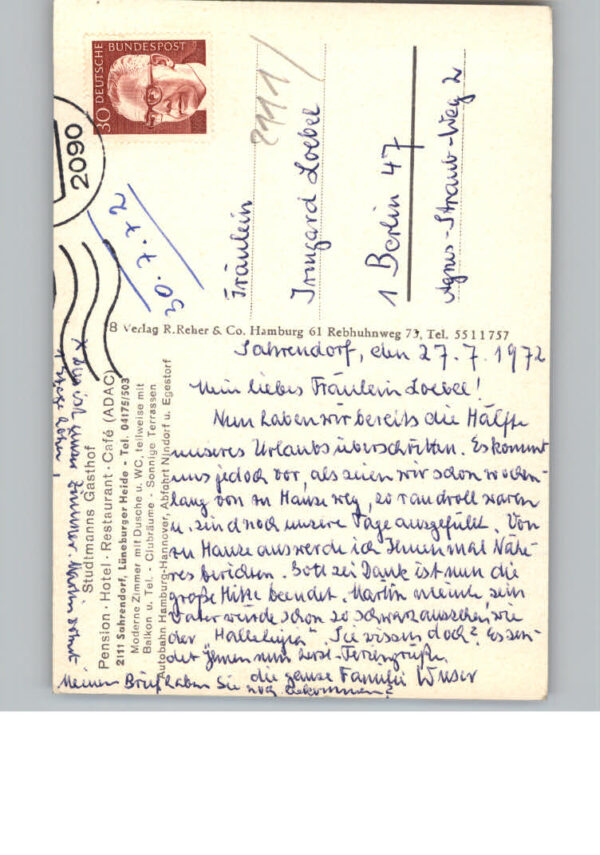 30 DEUTSCHE BUNDESPOST
2090
2111
30.7.72
Fräulein
Irmgard Loebel
1 Berlin 47
Agnes-Straub-Weg 2
Verlag R.Reher & Co. Hamburg 61 Rebhuhnweg 73, Tel. 5511757
Studtmanns Gasthof
Pension · Hotel · Restaurant · Café (ADAC)
2111 Sahrendorf, Lüneburger Heide - Tel. 04175/503
Moderne Zimmer mit Dusche u. WC, teilweise mit
Balkon u. Tel. - Clubräume - Sonnige Terrassen
Autobahn Hamburg-Hannover, Abfahrt Nindorf u. Egestorf
Sahrendorf, den 27.7.1972
Mein liebes Fräulein Loebel!
Nun haben wir bereits die Hälfte
unseres Urlaubs überschritten. Es kommt
uns jedoch vor, als seien wir schon wochen-
lang von zu Hause weg, so randvoll waren
u. sind noch unsere Tage ausgefüllt. Von
zu Hause aus werde ich Ihnen mal Nähe-
res berichten. Gott sei Dank ist nun die
große Hitze beendet. Martin meinte sein
Vater würde schon so schwarz aussehen, wie
der "Halleluja". Sie wissen doch? Es sen-
det Ihnen nun herzl. Feriengrüße
die ganze Familie
Meinen Brief haben Sie
noch bekommen?